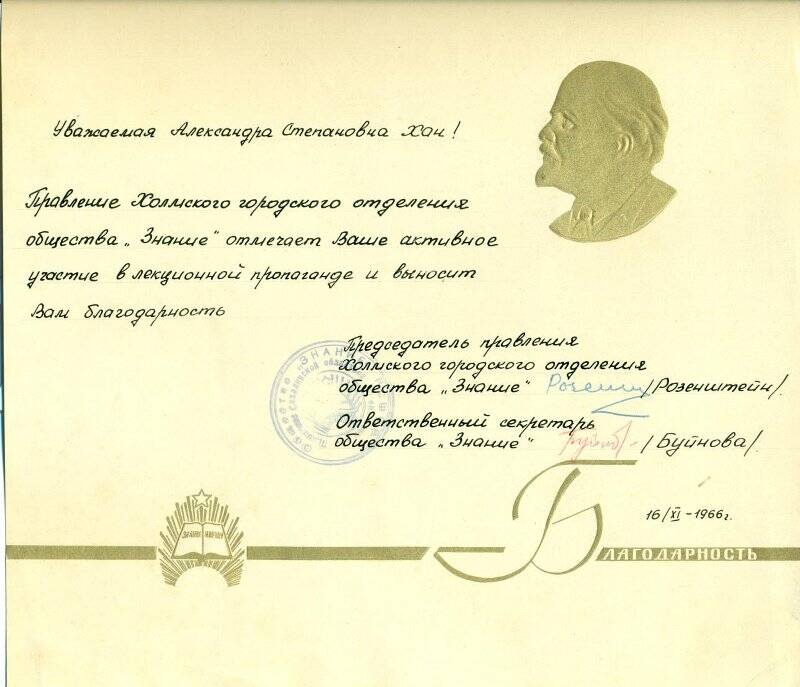 Уважаемая Александра Степановна Хан!
Правление Холмского городского отделения
общества „Знание" отмечает Ваше активное
участие в лекционной пропаганде и выносит
Вам благодарность
Председатель правления
Холмского городского отделения
общества „Знание" /Розенштейн/.
Ответственный секретарь
общества „Знание" /Буйнова/.
16/XI-1966г.
Благодарность